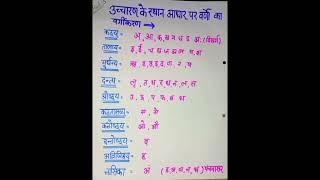 उच्चारण के स्थान आधार पर वर्णों का
वर्गीकरण →
कंठ्य → अ, आ, क, ख, ग, घ, ङ, अः (विसर्ग)
तालव्य → इ, ई, च, छ, ज, झ, ञ, य, श
मूर्धन्य → ऋ, ट, ठ, ड, ढ, ण, र, ष
दन्त्य → त, थ, द, ध, न, ल, स
ओष्ठ्य → उ, ऊ, प, फ, ब, भ
कंठतालव्य → ए, ऐ
कंठोष्ठ्य → ओ, औ
दन्तोष्ठ्य → व
नासिका → अं